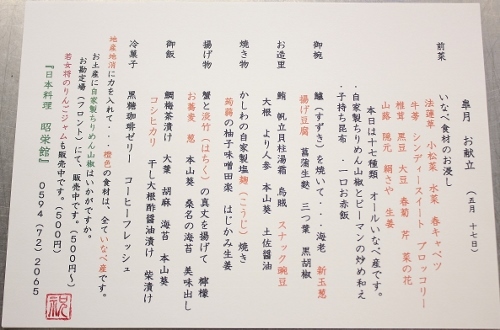 皐月 お献立 (五月 十七日)
前菜
いなべ食材のお浸し
法蓮草 小松菜 水菜 春キャベツ
牛蒡 シンディースイート ブロッコリー
椎茸 黒豆 大豆 春菊 芹 菜の花
山蕗 隠元 絹さや 生姜
本日は十七種類 オールいなべ産です。
・自家製ちりめん山椒とピーマンの炒め和え
・子持ち昆布 ・一口お赤飯
御椀 鱸(すずき)を焼いて・・海老 新玉葱
揚げ豆腐 菖蒲生麩 三つ葉 黒胡椒
お造里 鮪 帆立貝柱湯霜 烏賊 スナック豌豆
大根 より人参 本山葵 土佐醤油
焼き物 かしわの自家製塩麹(こうじ)焼き
蒟蒻の柚子味噌田楽 はじかみ生姜
揚げ物 蟹と淡竹(はちく)の真丈を揚げて 檸檬
お蕎麦 葱 本山葵 桑名の海苔 美味出し
御飯 鯛梅茶漬け 大葉 胡麻 海苔 本山葵
コシヒカリ 干し大根酢醤油漬け 柴漬け
冷菓子 黒糖珈琲ゼリー コーヒーフレッシュ
地産地消に力を入れて・・橙色の食材は、全ていなべ産です。
お土産に自家製ちりめん山椒はいかがですか。
お勘定場(フロント)にて、販売中です。(500円~)
若女将のりんごジャムも販売中です。(500円)
『日本料理 昭栄館』 0594(72)2065
祝